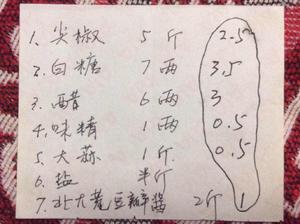 1. 尖椒 5斤 2.5
2. 白糖 7两 3.5
3. 醋 6两 3
4. 味精 1两 0.5
5. 大蒜 1斤. 0.5
6. 盐 半斤
7. 北大荒豆瓣酱 2斤 1